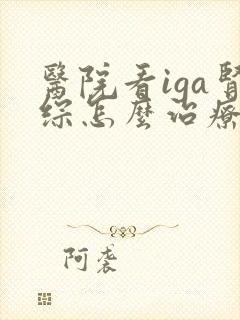 醫院看iga腎
综怎麼治療
阿袭